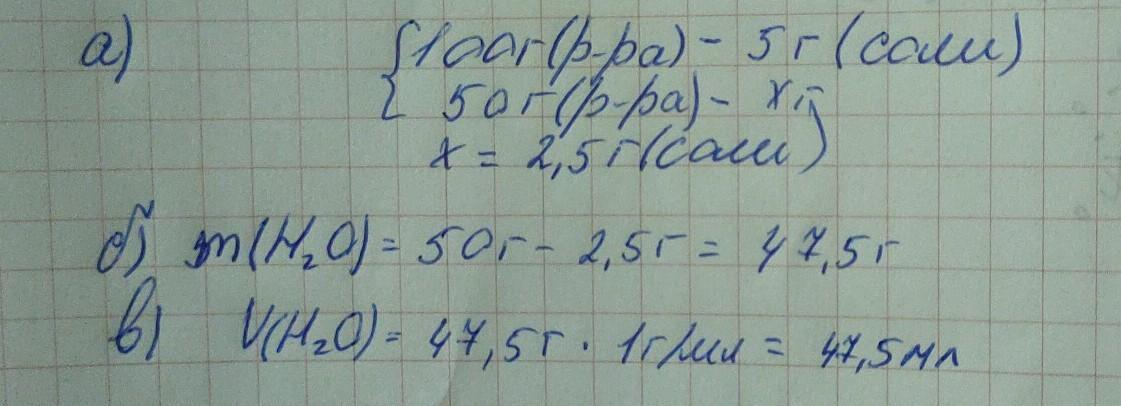 а) {100г(р-ра) - 5г(соли)
50г(р-ра) - xг
x = 2,5г(соли)
б) m(H₂O) = 50г - 2,5г = 47,5г
в) V(H₂O) = 47,5г · 1г/мл = 47,5мл